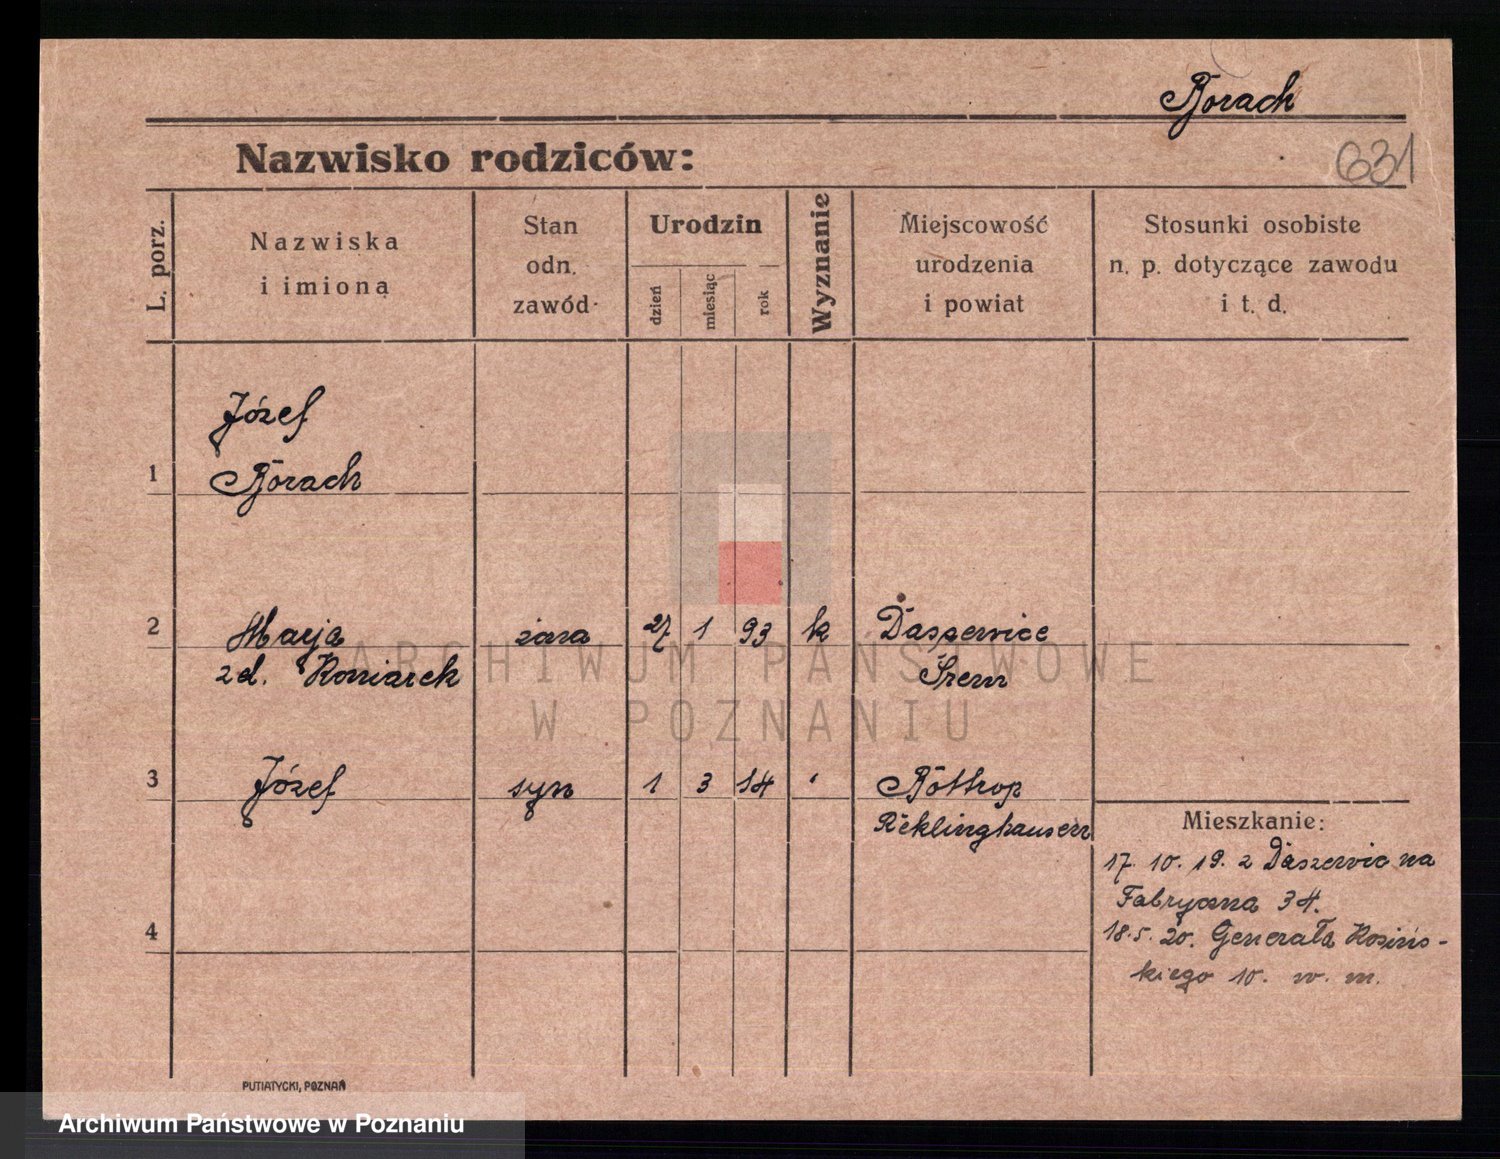 Borach
Nazwisko rodziców:
631
L. porz.
Nazwiska
i imiona
Stan
odn.
zawód
Urodzin
dzień
miesiąc
rok
Wyznanie
Miejscowość
urodzenia
i powiat
Stosunki osobiste
n. p. dotyczące zawodu
i t. d.
Józef
1 Borach
2 Marja żona 27 1 93 k Daszewice
zd. Koniarek Śrem
3 Józef syn 1 3 14 " Bottrop
Reklinghausen
Mieszkanie:
17. 10. 19. z Daszewic na
Fabryczna 34.
4
18. 5. 20. Generała Kosińs-
kiego 10. w. m.
ARCHIWUM PAŃSTWOWE
W POZNANIU
PUTIATYCKI, POZNAŃ
Archiwum Państwowe w Poznaniu